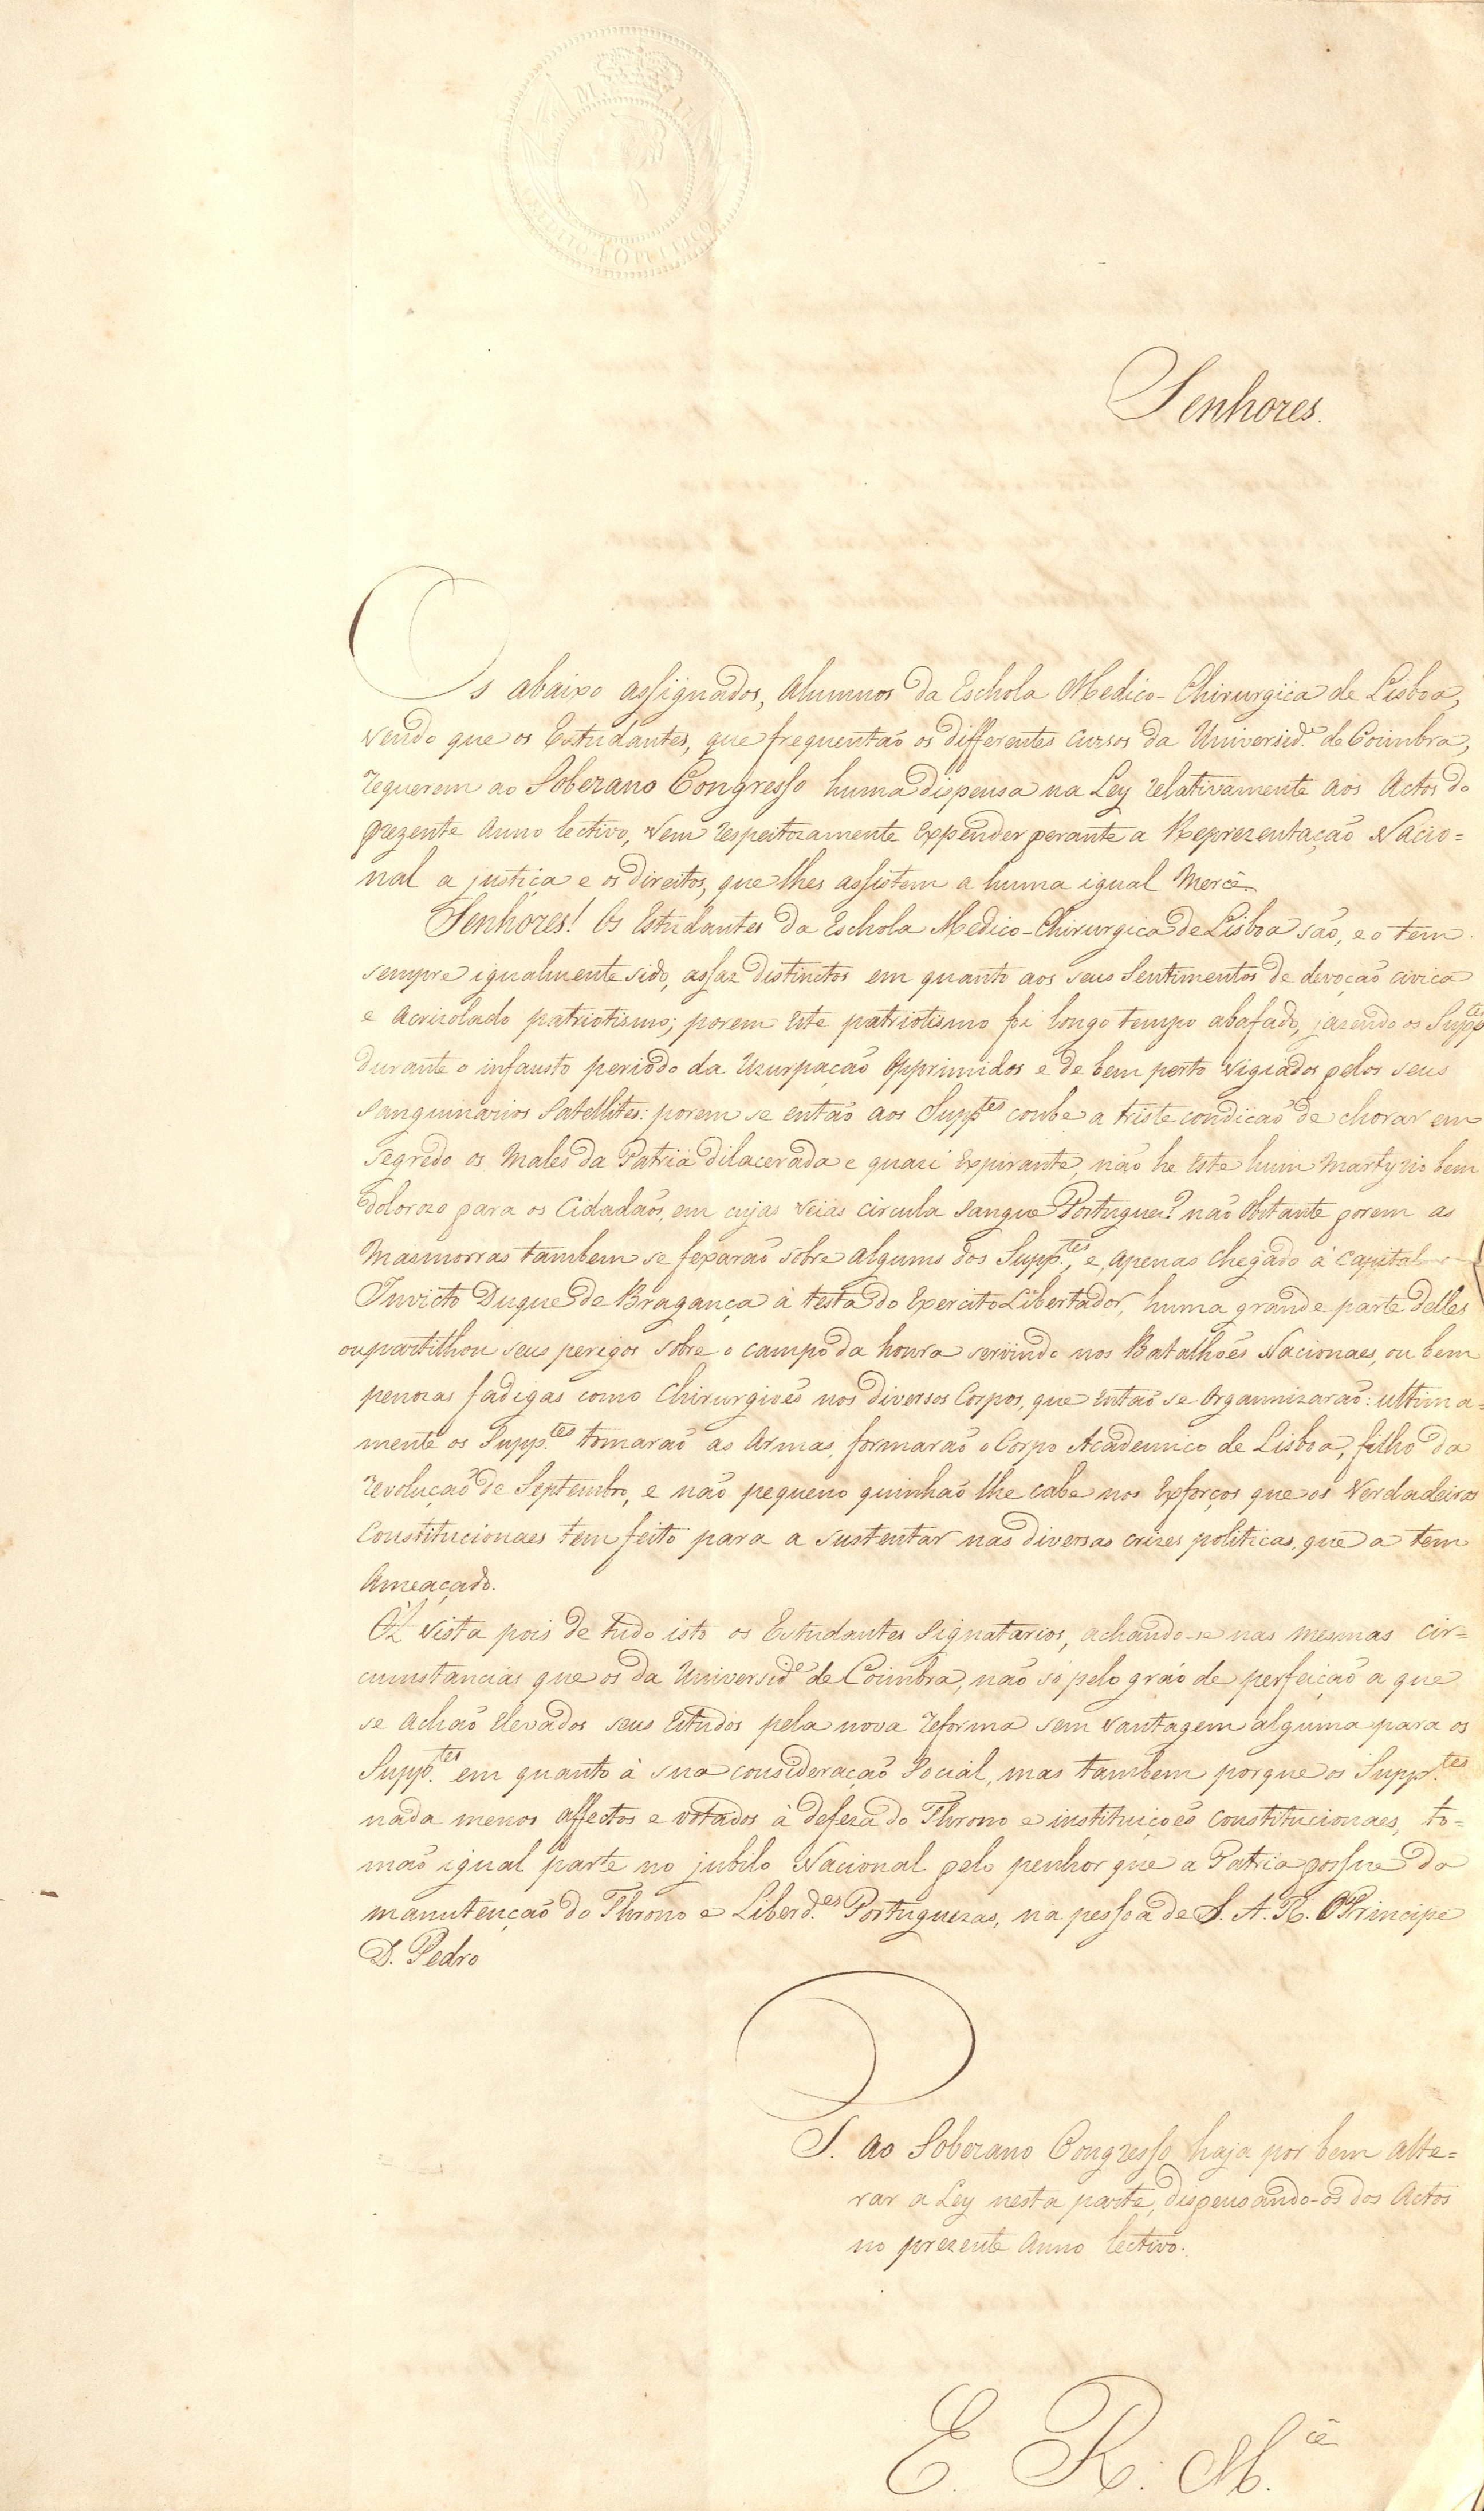 M. II
CREDITO PUBLICO
Senhores.
Os abaixo assignados, Alumnos da Eschola Medico-Chirurgica de Lisboa,
vendo que os Estudantes, que frequentão os differentes cursos da Universid.e de Coimbra,
requerem ao Soberano Congresso huma dispensa na Ley relativamente aos Actos do
prezente Anno lectivo, vem respeitozamente expender perante a Reprezentação Nacio=
nal a justiça e os direitos, que lhes assistem a huma igual Mercê.
Senhores! Os Estudantes da Eschola Medico-Chirurgica de Lisboa são, e o tem
sempre igualmente sido, assaz distinctos em quanto aos seus Sentimentos de devoção civica
e acrizolado patriotismo; porem este patriotismo foi longo tempo abafado, jazendo os Supp.tes
durante o infausto periodo da Uzurpação Opprimidos e de bem perto vigiados pelos seus
sanguinarios Satellites: porem se então aos Supp.tes coube a triste condicão de chorar em
segredo os Males da Patria dilacerada e quazi expirante, não he este hum Martyrio bem
dolorozo para os Cidadãos, em cujas veias circula sangue Portuguez? não Obstante porem as
Masmorras tambem se fexarão sobre alguns dos Supp.tes, e, apenas chegado á Capital o
Invicto Duque de Bragança á testa do Exercito Libertador, huma grande parte delles
ou partilhou seus perigos sobre o campo da honra servindo nos Batalhões Nacionaes, ou bem
penozas fadigas como Chirurgiões nos diversos Corpos, que então se Organnizarão: ultima=
mente os Supp.tes tomarão as Armas, formarão o Corpo Academico de Lisboa, filho da
revolução de Septembro, e não pequeno quinhão lhe cabe nos Exforços que os Verdadeiros
Constitucionaes tem feito para a sustentar nas diversas crizes politicas, que a tem
Ameaçado.
Á vista pois de tudo isto os Estudantes Signatarios, achando-se nas mesmas cir=
cumstancias que os da Universid.e de Coimbra, não só pelo gráo de perfeição a que
se achão elevados seus Estudos pela nova reforma sem vantagem alguma para os
Supp.tes em quanto á sua consideração Social, mas tambem porque os Supp.tes
nada menos affectos e votados á defeza do Throno e instituições constitucionaes, to=
mão igual parte no jubilo Nacional pelo penhor que a Patria possue da
manutenção do Throno e Liberd.es Portuguezas, na pessoa de S. A. R. O Principe
D. Pedro
P.
S. ao Soberano Congresso haja por bem alte=
rar a Ley nesta parte, dispensando-os dos Actos
no prezente Anno lectivo.
E. R. M.cê